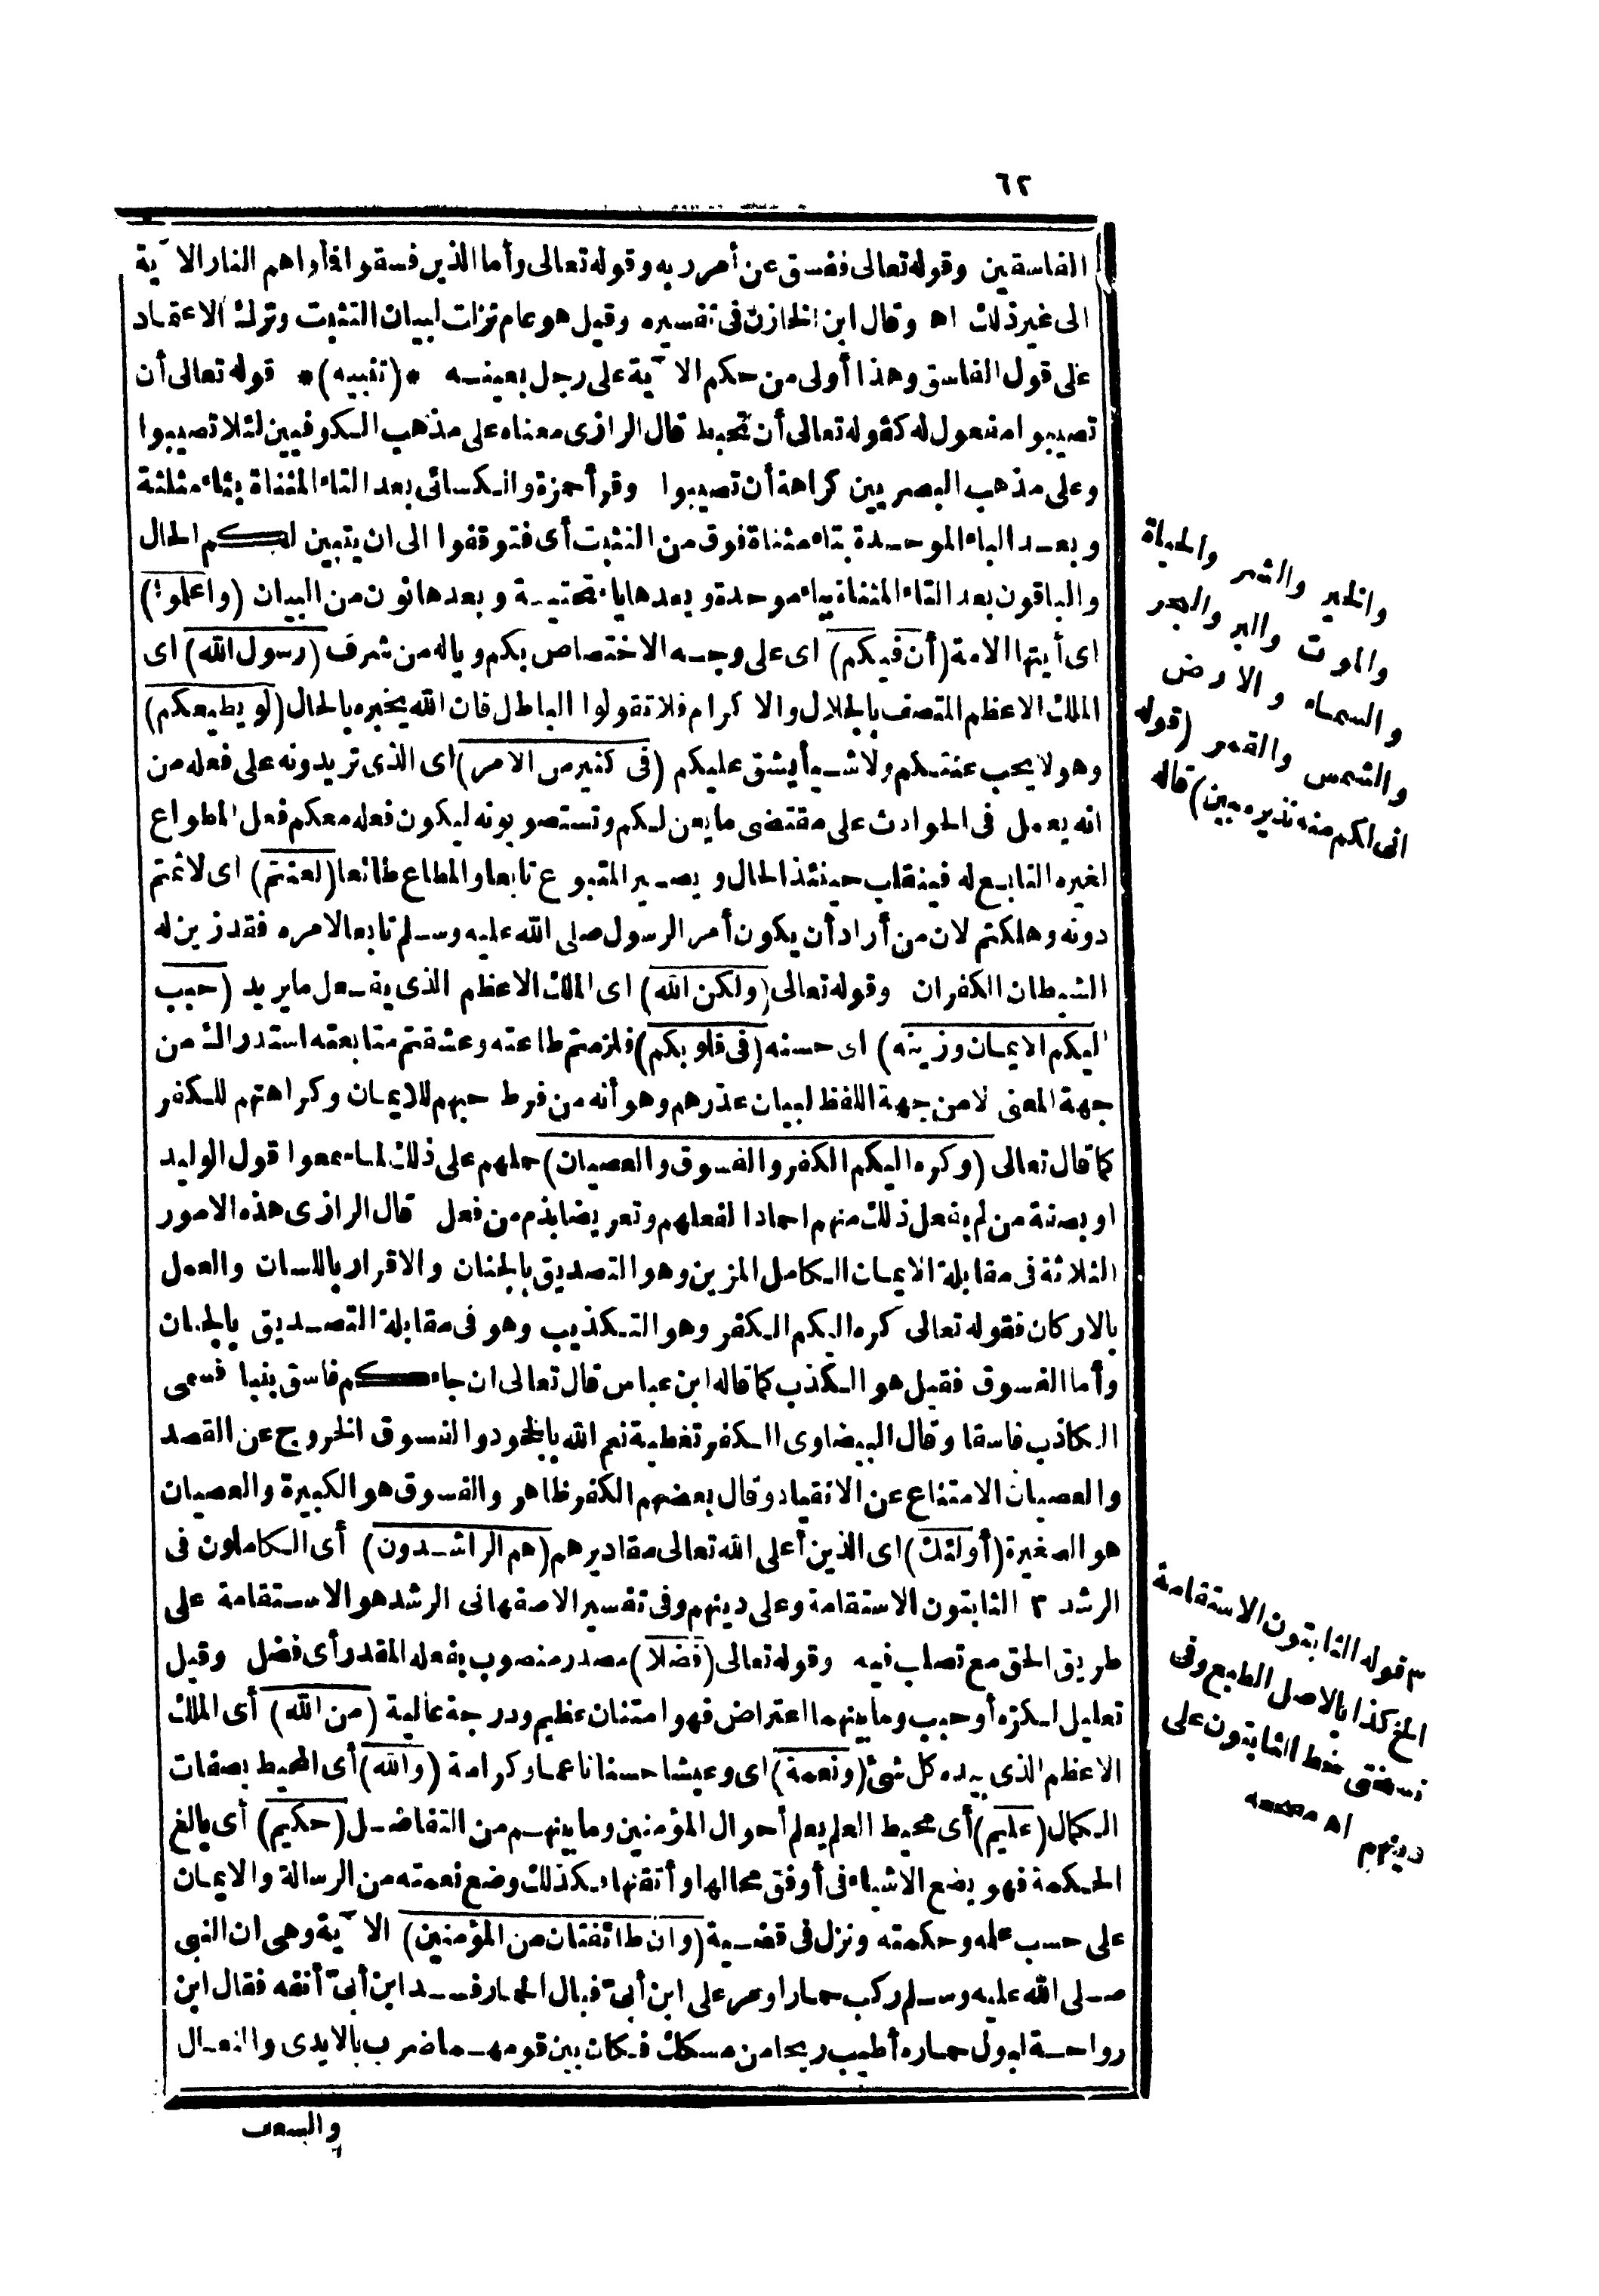 ٦٢
الفاسقين وقوله تعالى ففسق عن أمر ربه وقوله تعالى وأما الذين فسقوا فأواهم النار الآية
الى غير ذلك اه وقال ابن الخازن فى تفسيره وقيل هو عام نزلت لبيان التثبت وترك الاعتماد
على قول الفاسق وهذا أولى من حكم الآية على رجل بعينه *(تنبيه)* قوله تعالى أن
تصيبوا مفعول له كقوله تعالى أن تحبط قال الرازى معناه على مذهب الكوفيين لئلا تصيبوا
وعلى مذهب البصريين كراهة أن تصيبوا وقرأ حمزة والكسائى بعد التاء المثناة بثاء مثلثة
وبعد الباء الموحدة بتاء مثناة فوق من التثبت أى فتوقفوا الى ان يتبين لكم الحال
والباقون بعد التاء المثناة بباء موحدة وبعدها ياء تحتية وبعدها نون من البيان (واعلموا)
اى أيتها الامة (أن فيكم) اى على وجه الاختصاص بكم وياله من شرف (رسول الله) اى
الملك الاعظم المتصف بالجلال والاكرام فلا تقولوا الباطل فان الله يخبره بالحال (لو يطيعكم)
وهو لا يحب عنتكم ولا شيأ يشق عليكم (فى كثير من الامر) اى الذى تريدونه على فعله من
انه يعمل فى الحوادث على مقتضى ما يعن لكم وتستصوبونه ليكون فعله معكم فعل المطواع
لغيره التابع له فينقلب حينئذ الحال ويصير المتبوع تابعا والمطاع طائعا (لعنتم) اى لاثمتم
دونه وهلكتم لان من أراد أن يكون أمر الرسول صلى الله عليه وسلم تابعا لامره فقد زين له
الشيطان الكفران وقوله تعالى (ولكن الله) اى الملك الاعظم الذى يفعل ما يريد (حبب
اليكم الايمان وزينه) اى حسنه (فى قلوبكم) فلزمتم طاعته وعشقتم متابعته استدراك من
جهة المعنى لا من جهة اللفظ لبيان عذرهم وهو أنه من فرط حبهم للايمان وكراهتهم للكفر
كما قال تعالى (وكره اليكم الكفر والفسوق والعصيان) حملهم على ذلك لما سمعوا قول الوليد
او بصفة من لم يفعل ذلك منهم احمادا لفعلهم وتعريضا بذم من فعل قال الرازى هذه الامور
الثلاثة فى مقابلة الايمان الكامل المزين وهو التصديق بالجنان والاقرار باللسان والعمل
بالاركان فقوله تعالى كره اليكم الكفر وهو التكذيب وهو فى مقابلة التصديق بالجنان
وأما الفسوق فقيل هو الكذب كما قاله ابن عباس قال تعالى ان جاءكم فاسق بنبا فسمى
الكاذب فاسقا وقال البيضاوى الكفر تغطية نعم الله بالجحود والفسوق الخروج عن القصد
والعصيان الامتناع عن الانقياد وقال بعضهم الكفر ظاهر والفسوق هو الكبيرة والعصيان
هو الصغيرة (أولئك) اى الذين أعلى الله تعالى مقاديرهم (هم الراشدون) أى الكاملون فى
الرشد ٣ الثابتون الاستقامة وعلى دينهم وفى تفسير الاصفهانى الرشد هو الاستقامة على
طريق الحق مع تصلب فيه وقوله تعالى (فضلا) مصدر منصوب بفعله المقدر أى فضل وقيل
تعليل لكره أو حبب وما بينهما اعتراض فهو امتنان عظيم ودرجة عالية (من الله) أى الملك
الاعظم الذى بيده كل شئ (ونعمة) اى وعيشا حسنا ناعما وكرامة (والله) أى المحيط بصفات
الكمال (عليم) أى محيط العلم يعلم أحوال المؤمنين وما بينهم من التفاضل (حكيم) أى بالغ
الحكمة فهو يضع الاشياء فى أوفق محالها وأتقنها فكذلك وضع نعمته من الرسالة والايمان
على حسب علمه وحكمته ونزل فى قضية (وان طائفتان من المؤمنين) الآية وهى ان النبى
صلى الله عليه وسلم ركب حمارا ومر على ابن أبىّ فبال الحمار فسد ابن أبىّ أنفه فقال ابن
رواحة لبول حماره أطيب ريحا من مسكك فكان بين قومهما ضرب بالايدى والنعال
والسعف
والخير والشر والحياة
والموت والبر والبحر
والسماء والارض
والشمس والقمر (قوله
انى لكم منه نذير مبين) قاله
٣ قوله الثابتون الاستقامة
الخ كذا بالاصل الطبع وفى
نسختى خط الثابتون على
دينهم اه مصححه